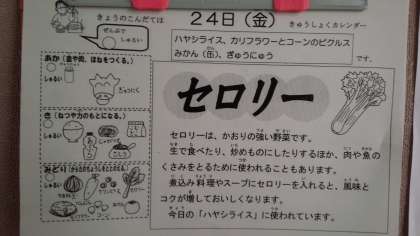 きょうのこんだては
24日(金)
きゅうしょくカレンダー
ぜんぶで
しゅるい
ハヤシライス、カリフラワーとコーンのピクルス
みかん(缶)、ぎゅうにゅう
です。
あか(血や肉、ほねをつくる。)
しゅるい
ぎゅうにく
き(ねつや力のもとになる。)
しゅるい
みどり
しゅるい
セロリー
セロリーは、かおりの強い野菜です。
生で食べたり、炒めものにしたりするほか、肉や魚の
くさみをとるために使われることもあります。
煮込み料理やスープにセロリーを入れると、風味と
コクが増しておいしくなります。
今日の「ハヤシライス」に使われています。